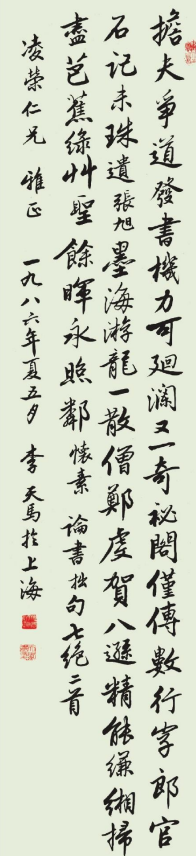 擔夫爭道發書機力可迴瀾又一奇祕閣僅傳數行字郎官
石記未珠遺張旭墨海游龍一散僧鄭虔賀八遜精能縑緗掃
盡芭蕉綠艸聖餘暉永照鄰懷素論書拙句七絕二首
凌榮仁兄雅正一九八六年夏五月李天馬於上海